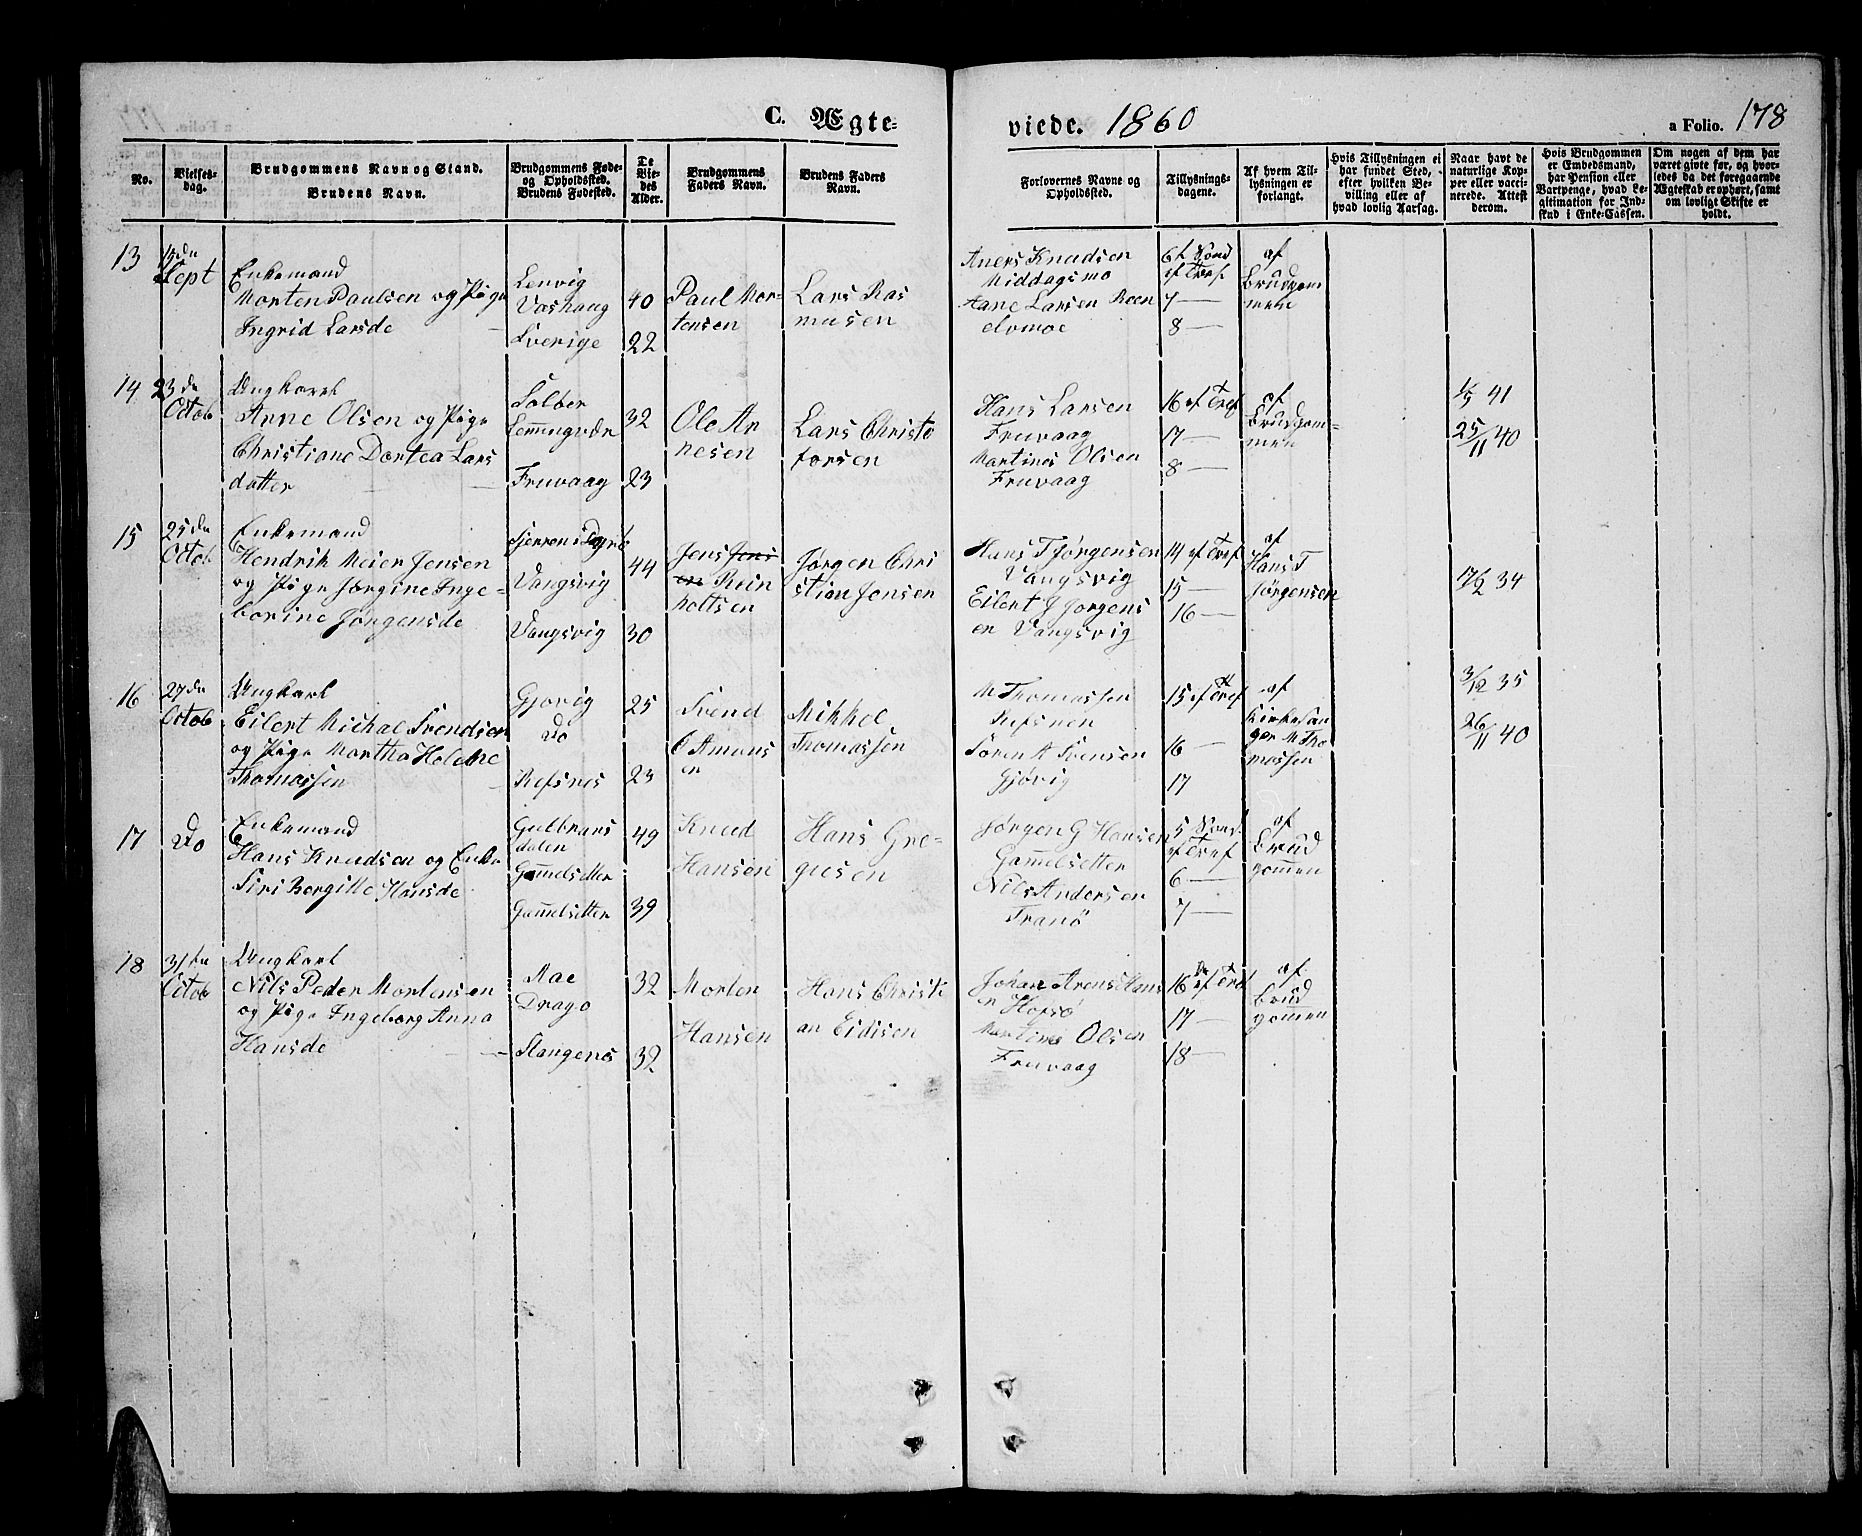 C. Ægte-
viede. 1860
a Folio. 178
No.
Vielses-
dag.
Brudgommens Navn og Stand.
Brudens Navn.
Brudgommens Føde-
og Opholdssted.
Brudens Fødested.
De
Vie-
des
Alder.
Brudgommens
Faders Navn.
Brudens Faders
Navn.
Forlovernes Navne og
Opholdssted.
Tillysnings-
dagene.
Af hvem Til-
lysningen er
forlangt.
Hvis Tillysningen ei
har fundet Sted,
efter hvilken Be-
villing eller af
hvad lovlig Aarsag.
Naar havt de
naturlige Kop-
per eller vacci-
nerede. Attest
derom.
Hvis Brudgommen
er Embedsmand,
har Pension eller
Vartpenge, hvad Le-
gitimation for Ind-
skud i Enke-Cassen.
Om nogen af dem har
været givte før, og hvor-
ledes da det foregaaende
Ægteskab er ophørt, samt
om lovligt Skifte er
holdt.
13
Sept
Enkemand
Morten Paulsen og Pige
Ingrid Larsde
Lenvig
Vashaug
Sverige
40
22
Paul Mor-
tensen
Lars Ras
musen
Aners Knudsen
Middagsmo
Aane Larsen Roen
elvmoe
7 —
8 —
af
Brudgom
men
14
23 de
Octob
Ungkarl
Arne Olsen og Pige
Christiane Dortea Lars
datter
Solber
Lemmingvær
Fruvaag
32
23
Ole Ar
nesen
Lars Christo
forsen
Hans Larsen
Fruvaag
Martines Olsen
Fruvaag
16 ef Tref
17 —
8 —
af
Brudgom=
men
1/5 41
25/11 40
15
25 de
Octob
Enkemand
Hendrik Meier Jensen
og Pige Jørgine Inge-
borine Jørgensde
Vangsvig
Vangsvig
44
30
Jens Jens
en Rein
holtsen
Jørgen Chri
stian Jensen
Hans T Jørgensen
Vangsvig
Eilert J Jørgens
en Vangsvig
14 ef Tref
15 —
16 —
af
Hans T
Jørgensen
17/2 34
16
27 de
Octob
Ungkarl
Eilert Michal Svendsen
og Pige Martha Helene
Thomassen
Gjøvig
Do
Refsnes
25
23
Svend
Amuns
en
Mikkel
Thomassen
M Thomassen
Refsnes
Søren A Svensen
Gjøvig
15 ef Tref
16 —
17
af
Kirkesan
ger M Tho
massen
3/12 35
26/11 40
17
Do
Enkemand
Hans Knudsen og Enke
Siri Bergitte Hansde
Gulbrans
dalen
Gammelsetter
Gammelsetter
49
39
Knud
Hansen
Hans Gre-
gusen
Jørgen G Hansen
Gammelsetter
Nils Andersen
Tranø
6 —
7 —
af
Brud
gommen
18
31te
Octob
Ungkarl
Nils Peder Mortensen
og Pige Ingeborg Anna
Hansde
Aae
Drago
Stangenes
32
32
Morten
Hansen
Hans Christi
an Eidisen
Johan Arens Hans
en Hofsø
Martines Olsen
Fruvaag
16 ef Tref
17 —
18 —
af
Brud
gommen